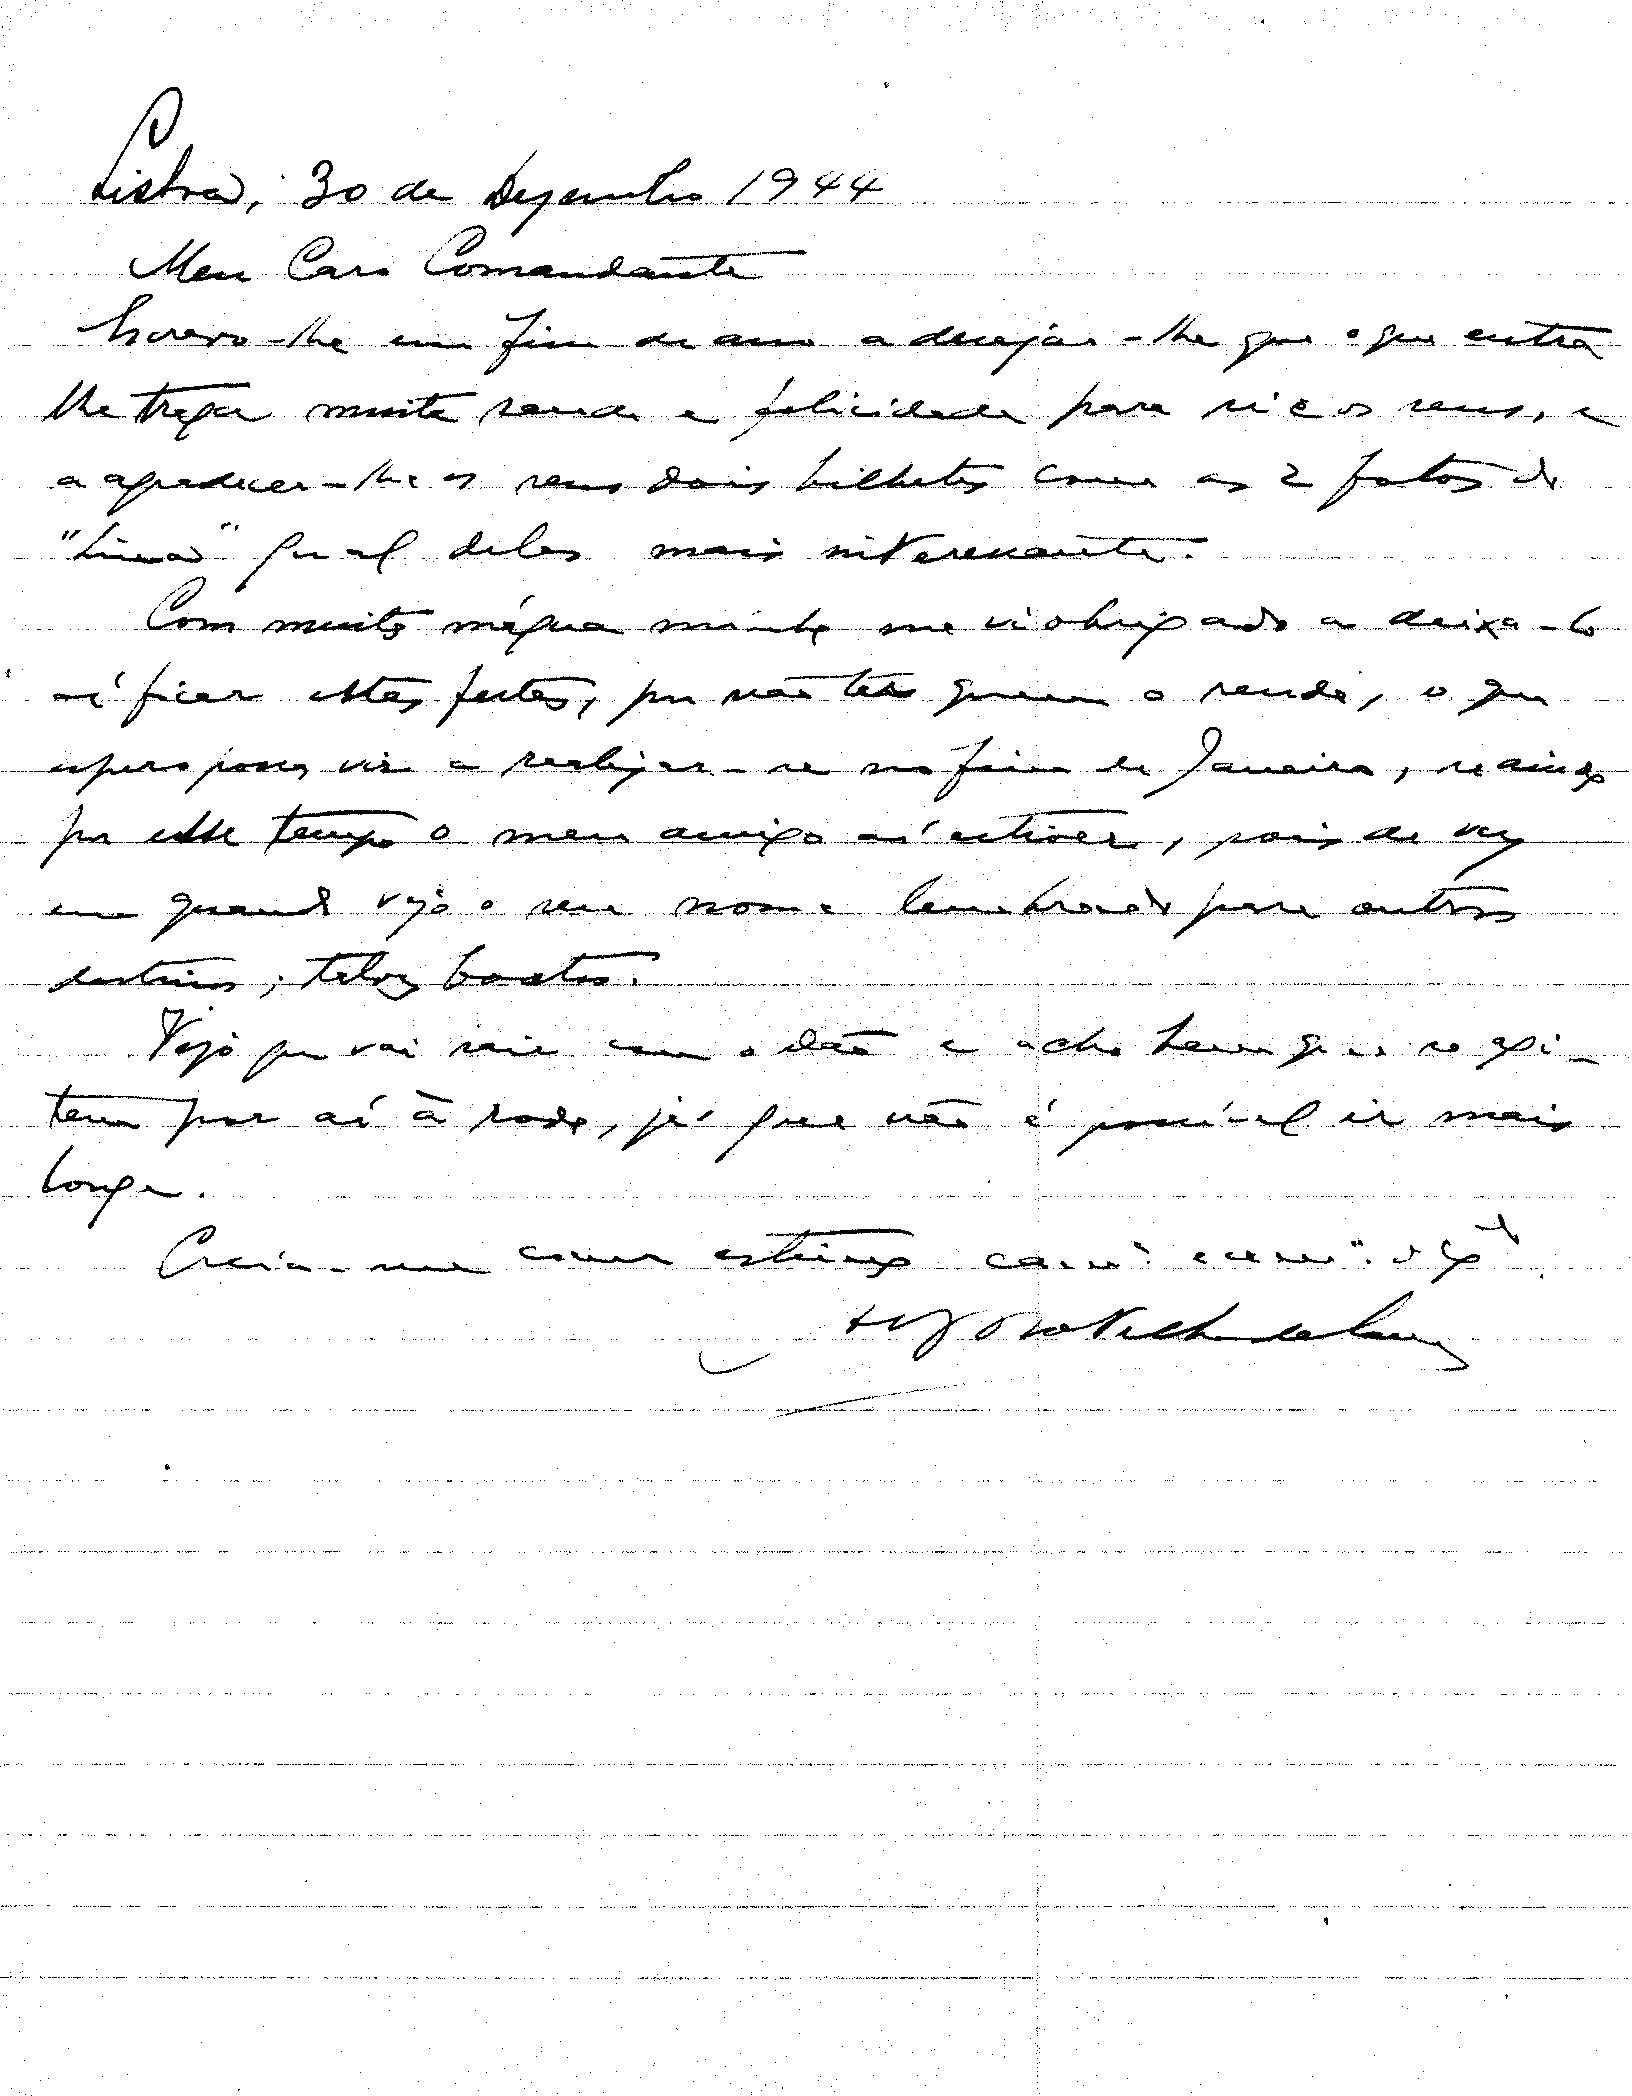 Lisboa, 30 de Dezembro 1944
Meu Caro Comandante
Escrevo-lhe em fim de ano a desejar-lhe que o que entra
lhe traga muita saude e felicidade para si e os seus, e
a agradecer-lhe os seus dois bilhetes com as 2 fotos do
"Lima" qual delas mais interessante.
Com muita mágua minha me vi obrigado a deixa-lo
aí ficar estas festas, por não ter quem o renda, o que
espero possa vir a realizar-se no fim de Janeiro, se ainda
por esse tempo o meu amigo aí estiver, pois de vez
em quando vejo o seu nome lembrado para outros
destinos, talvez boatos.
Vejo que vai sair com o Dão e acho bem que se agi-
tem por aí à roda, já que não é possível ir mais
longe.
Creia-me com estima